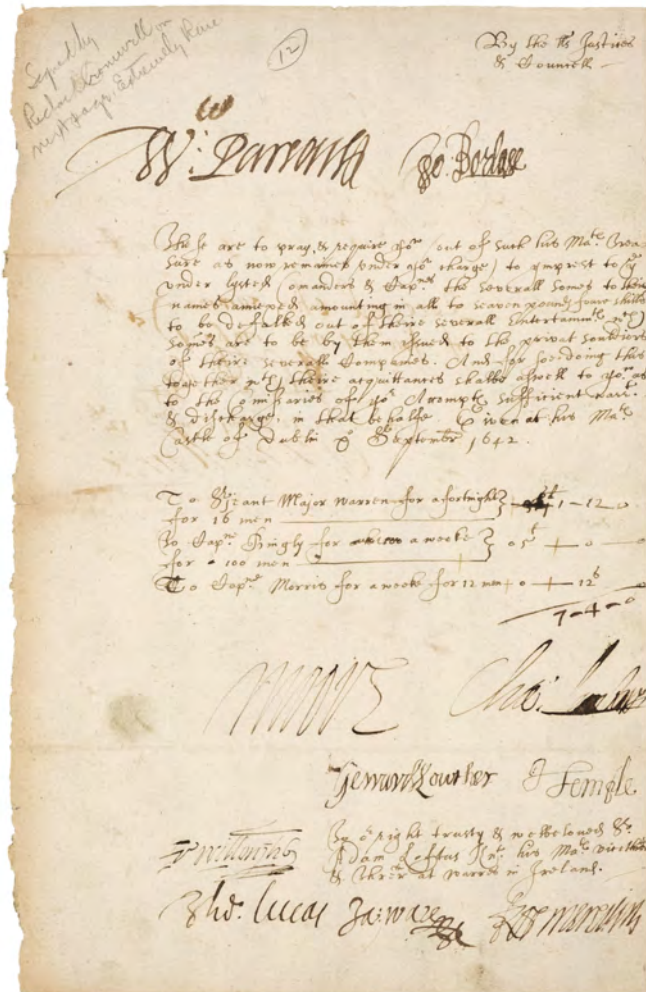 Signed by
Richard Cromwell on
next page. Extremely Rare
12
By the Lls Justices
& Councell
W: Parsons Jo: Borlase
These are to pray, & require yor (out of such his Mats Trea
sure as now remaines under yor charge) to imprest to ye
under listed Comanders & Capnes the severall somes to their
names annexed, amounting in all to seaven pounds foure shills
to be defalked out of theire severall Entertainmts wch
somes are to be by them issued to the privat souldiers
of theire severall Companies. And for soe doing this
together wth theire acquittances shalbe aswell to yor as
to the Comissaries of yor Accompts sufficient warrt
& discharge, in that behalfe. Given at his Mats
Castle of Dublin September 1642.
To Srjeant Major Warren for a fortnight 1 - 12 - 0
for 16 men
To Capne Bingly for a weeke 05 - 0 - 0
for 100 men
To Capne Morris for a weeke for 12 men 0 - 12
7 - 4 - 0
Cha:
Gerrard Lowther J Temple
To or right trusty & welbeloved Sr
Adam Loftus Knt his Mats vice
& threr at warres in Ireland.
Tho: Lucas Ja: Ware Rob Meredith